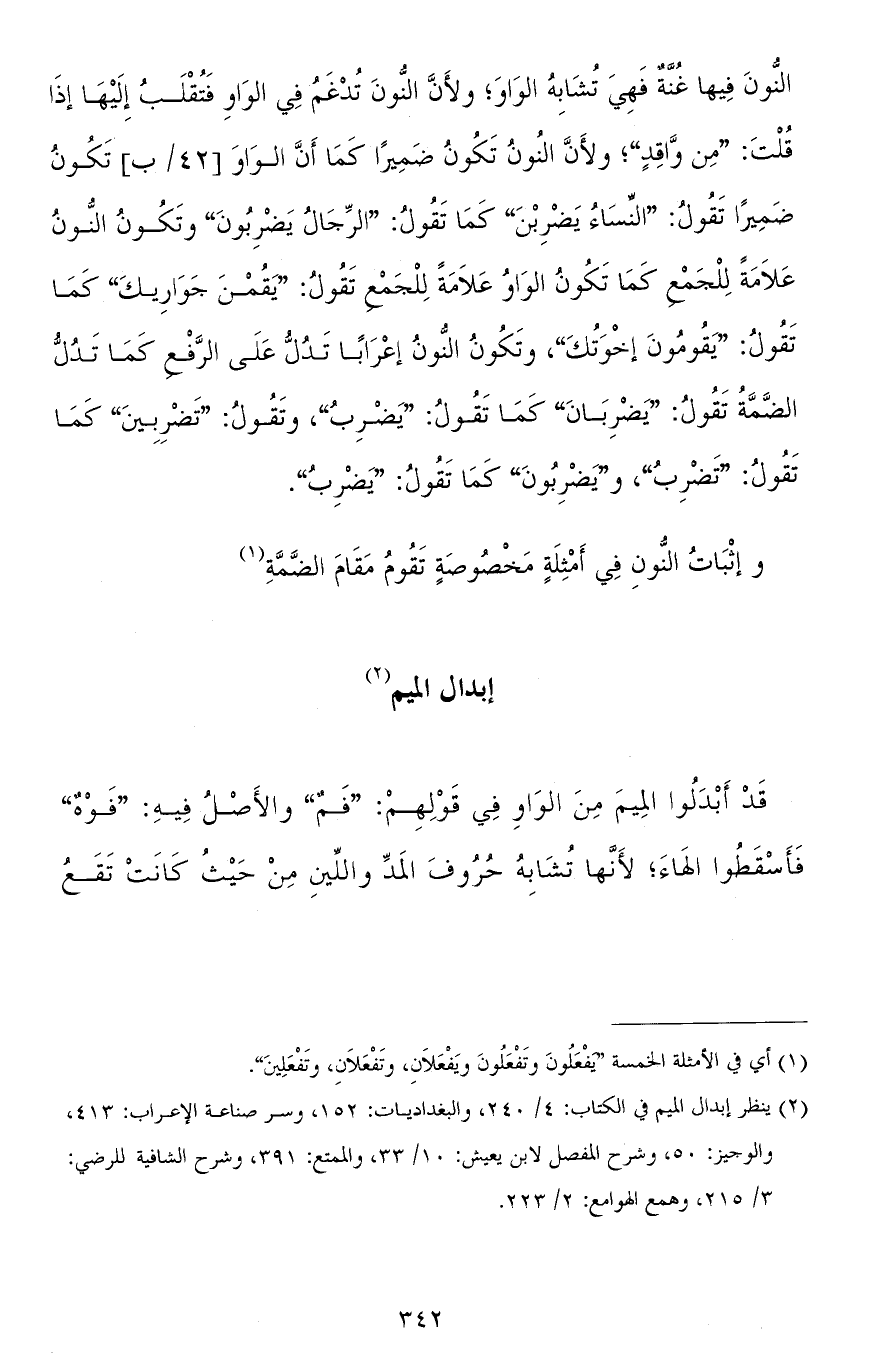 النُّونَ فِيها غُنَّةٌ فَهِيَ تُشَابِهُ الوَاوَ؛ ولأَنَّ النُّونَ تُدْغَمُ فِي الوَاوِ فَتُقْلَـبُ إِلَيْهَـا إذَا
قُلْتَ: ”مِن وَّاقِدٍ“؛ ولأَنَّ النُونُ تَكُونُ ضَمِيرًا كَمَا أَنَّ الـوَاوَ [٤٢/ ب] تَكُـونُ
ضَمِيرًا تَقُولُ: ”النِّسَاءُ يَضْرِبْنَ“ كَمَا تَقُولُ: ”الرِّجَالُ يَضْرِبُونَ“ وتَكُـونُ النُّـونُ
عَلاَمَةً لِلْجَمْعِ كَمَا تَكُونُ الوَاوُ عَلاَمَةً لِلْجَمْعِ تَقُولُ: ”يَقُمْـنَ جَوَارِيـكَ“ كَمَـا
تَقُولُ: ”يَقُومُونَ إخْوَتُكَ“، وتَكُونُ النُّونُ إعْرَابًـا تَـدُلُّ عَلَـى الرَّفْـعِ كَمَـا تَـدُلُّ
الضَّمَّةُ تَقُولُ: ”يَضْرِبَـانَ“ كَمَـا تَقُـولُ: ”يَضْـرِبُ“، وتَقُـولُ: ”تَضْرِبِـينَ“ كَمَـا
تَقُولُ: ”تَضْرِبُ“، و”يَضْرِبُونَ“ كَمَا تَقُولُ: ”يَضْرِبُ“.
و إثْبَاتُ النُّونِ فِي أَمْثِلَةٍ مَخْصُوصَةٍ تَقُومُ مَقَامَ الضَّمَّةِ(١)
إبدال الميم(٢)
قَدْ أَبْدَلُوا المِيمَ مِنَ الوَاوِ فِي قَوْلِهِـمْ: ”فَـمٌ“ والأَصْـلُ فِيـهِ: ”فَـوْهٌ“
فَأَسْقَطُوا الهَاءَ؛ لأَنَّها تُشَابِهُ حُرُوفَ المَدِّ واللِّينِ مِنْ حَيْثُ كَانَتْ تَقَـعُ
(١) أي في الأمثلة الخمسة ”يَفْعَلُونَ وتَفْعَلُونَ ويَفْعَلاَنِ، وتَفْعَلاَنِ، وتَفْعَلِينَ“.
(٢) ينظر إبدال الميم في الكتاب: ٤/ ٢٤٠، والبغداديـات: ١٥٢، وسـر صناعـة الإعـراب: ٤١٣،
والوجيز: ٥٠، وشرح المفصل لابن يعيش: ١٠/ ٣٣، والممتع: ٣٩١، وشرح الشافية للرضي:
٣/ ٢١٥، وهمع الهوامع: ٢/ ٢٢٣.
٣٤٢